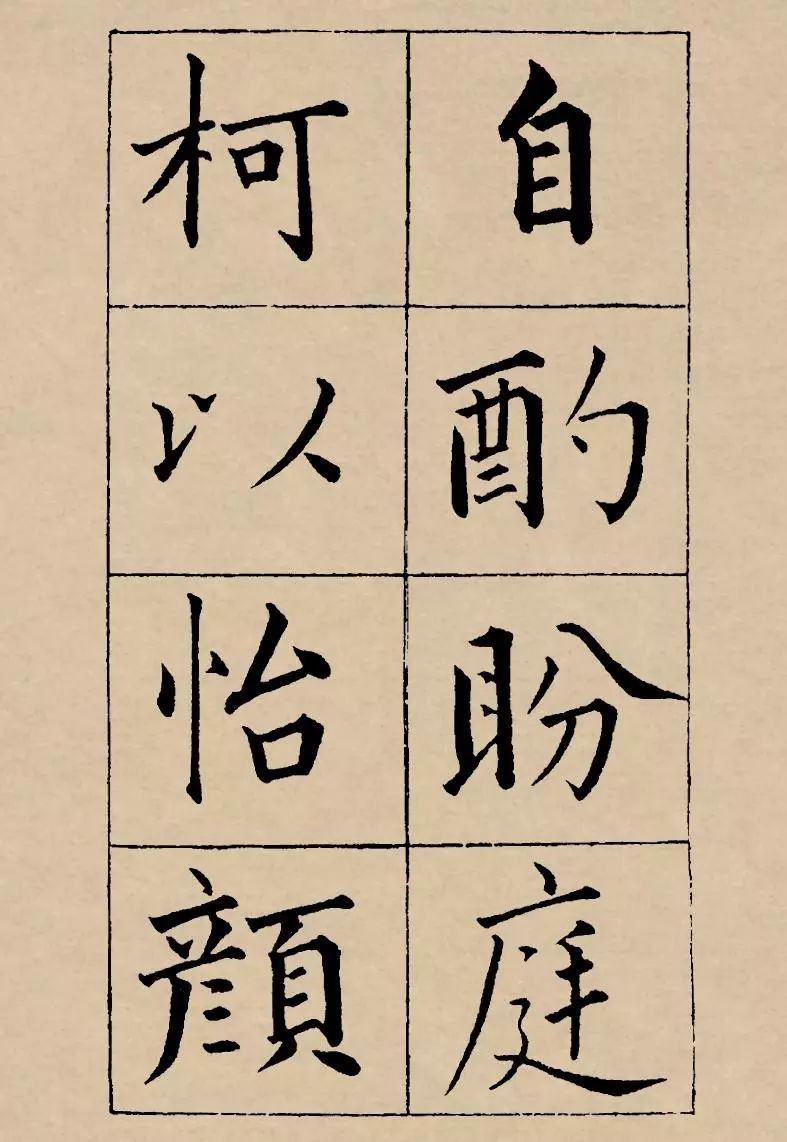 自酌盼庭
柯以怡顔